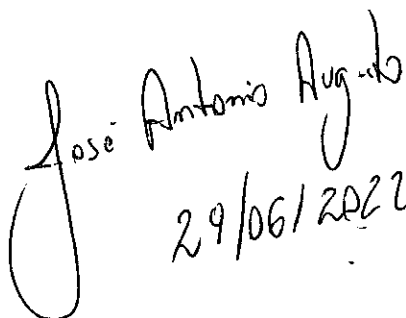 José Antonio Augusto
29/06/2022